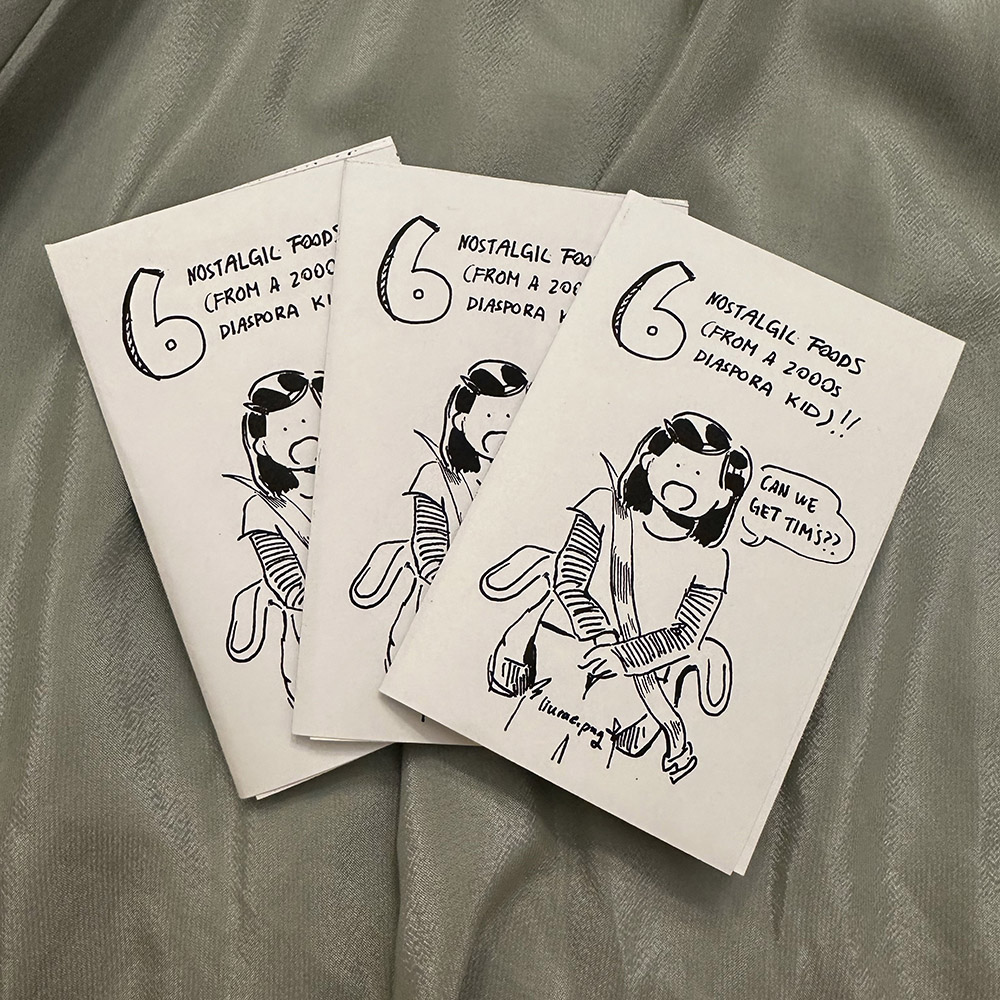 6
NOSTALGIL FOODS
(FROM A 2000
DIASPORA KI
6
NOSTALGIL FOO
(FROM A 200
DIASPORA K
6
NOSTALGIL FOODS
(FROM A 2000s
DIASPORA KID)!!
CAN WE
GET TIM'S??
liurae.png